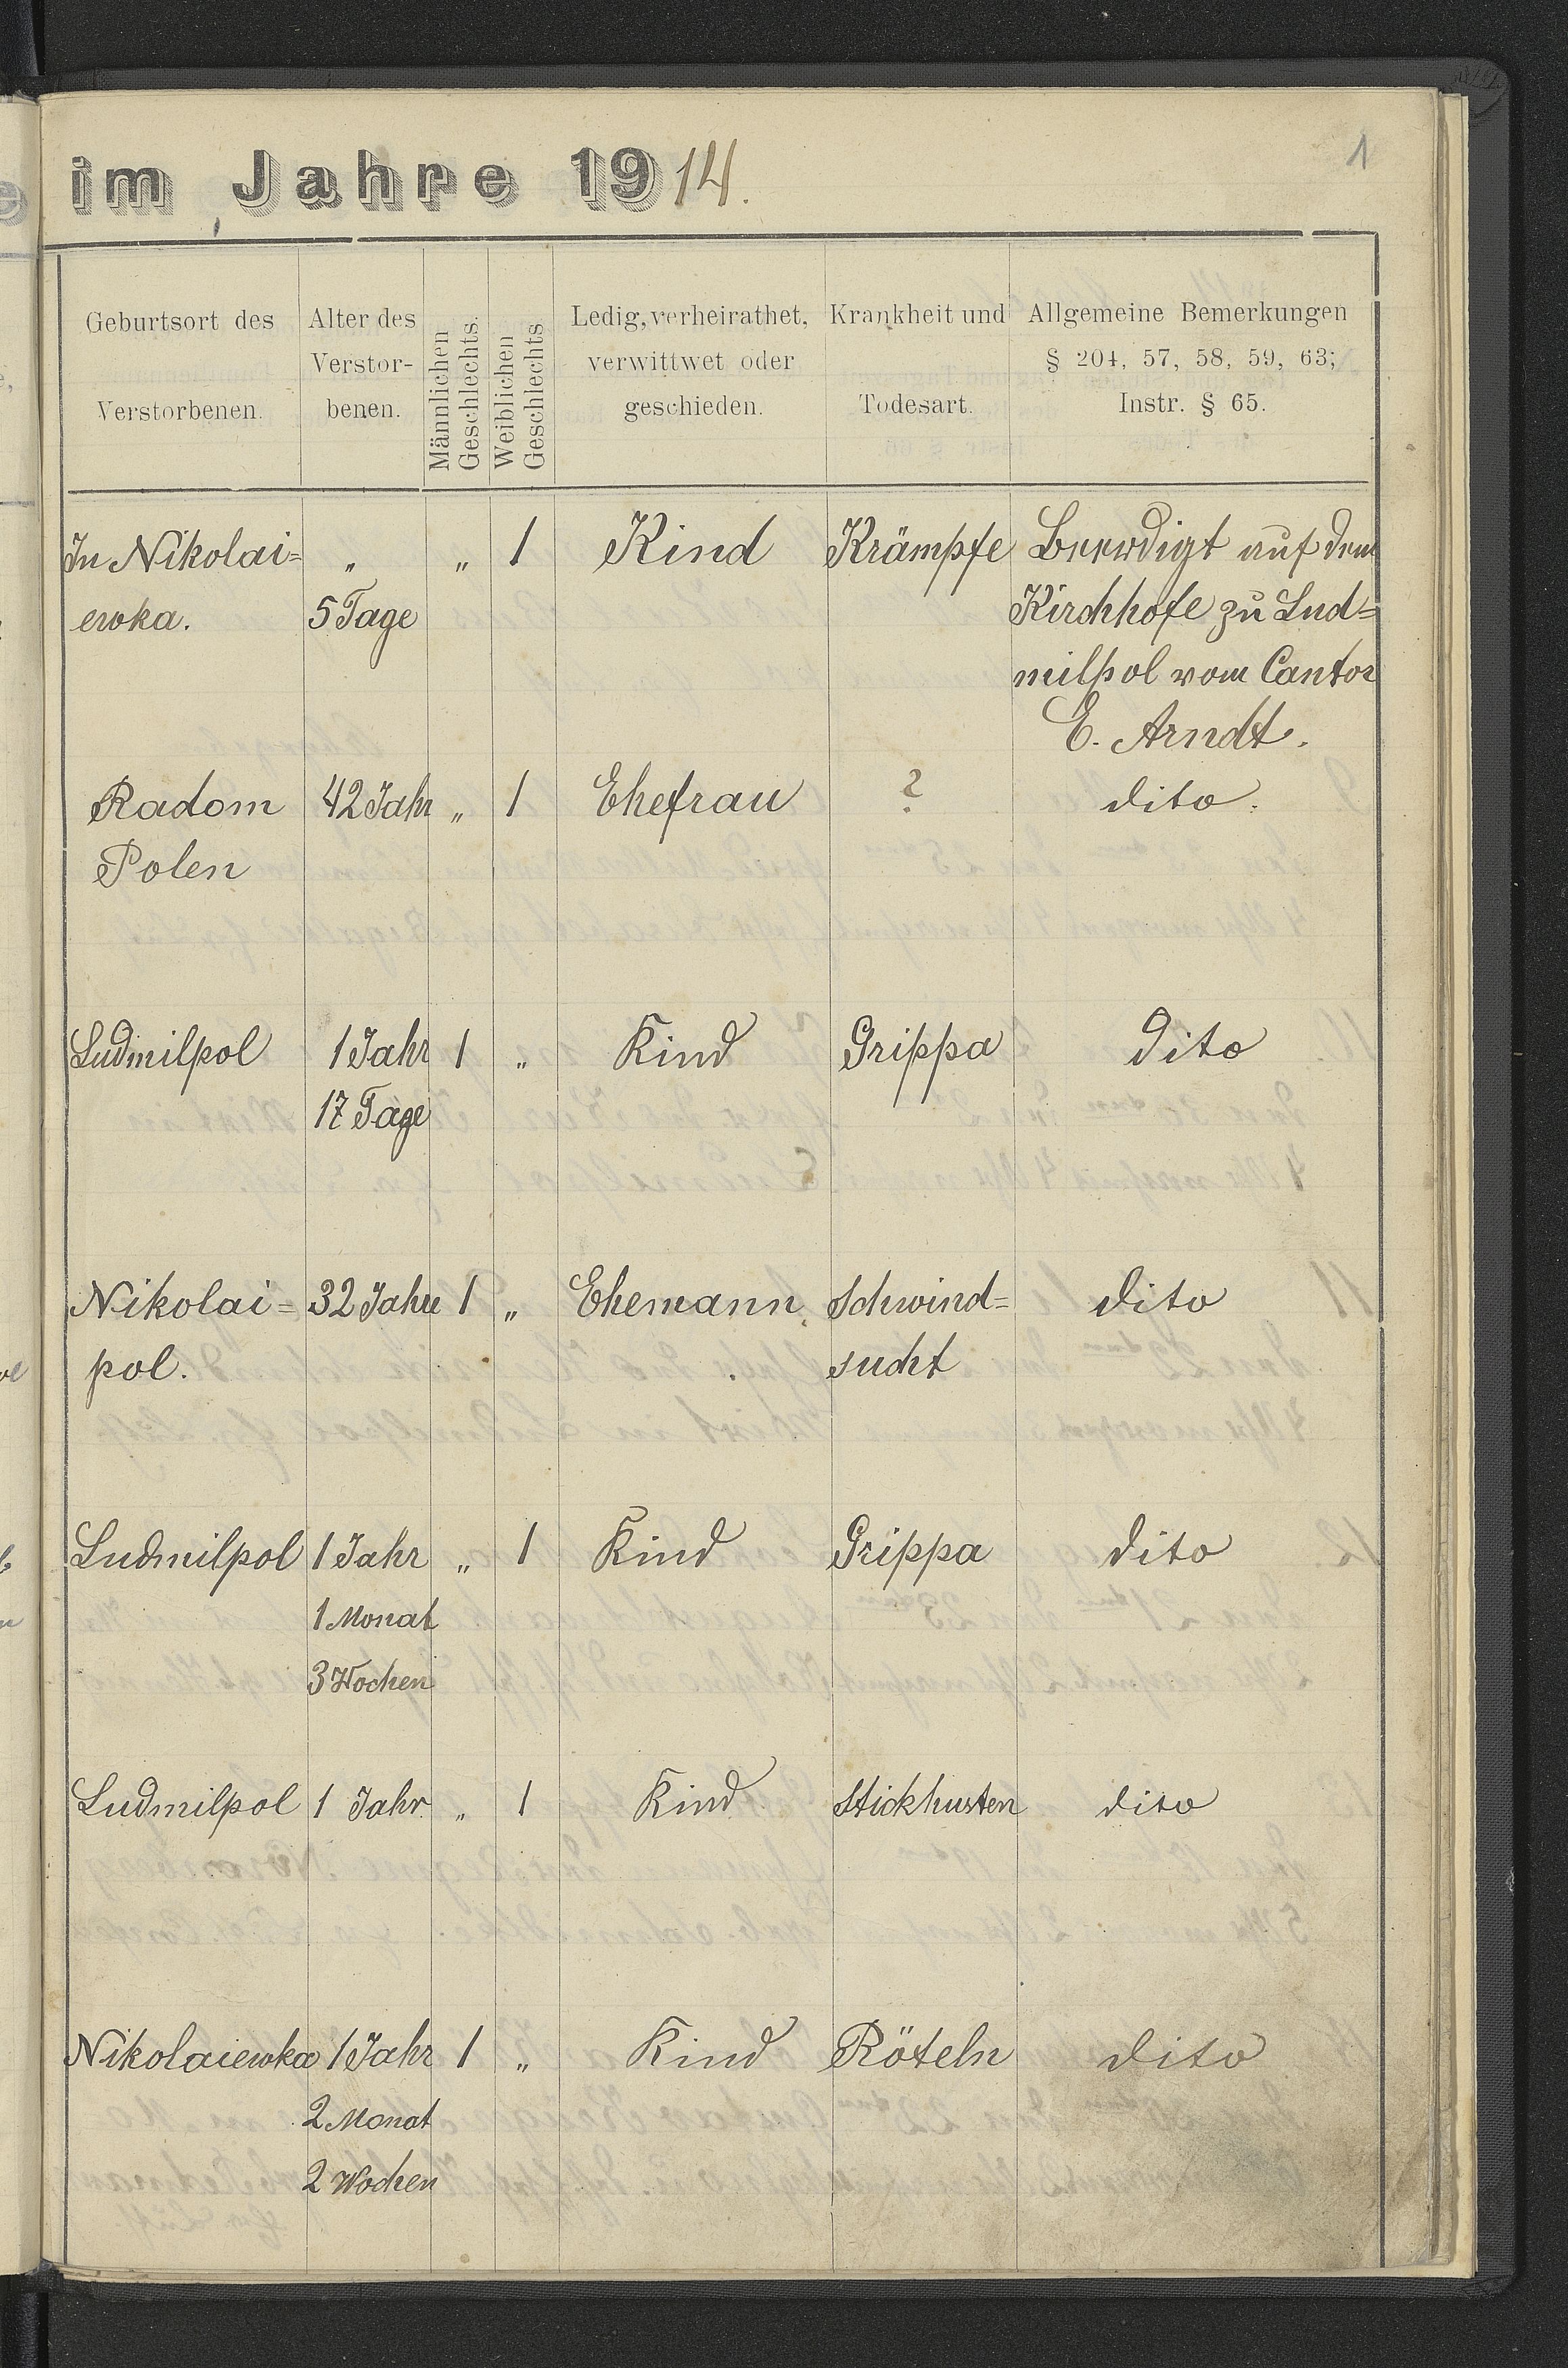 im Jahre 1914.
1
Geburtsort des
Verstorbenen.
Alter des
Verstor-
benen.
Männlichen
Geschlechts.
Weiblichen
Geschlechts
Ledig, verheirathet,
verwittwet oder
geschieden.
Krankheit und
Todesart.
Allgemeine Bemerkungen
§ 204, 57, 58, 59, 63;
Instr. § 65.
In Nikolai= „ „ 1 Kind Krämpfe Beerdigt auf dem
ewka. 5 Tage Kirchhofe zu Lud=
milpol vom Cantor
E. Arndt.
Radom 42 Jahr „ 1 Ehefrau ? dito.
Polen
Ludmilpol 1 Jahr 1 „ Kind Grippa dito
17 Tage
Nikolai= 32 Jahre 1 „ Ehemann Schwind=
pol. sucht dito
Ludmilpol 1 Jahr „ 1 Kind Grippa dito
1 Monat
3 Wochen
Ludmilpol 1 Jahr „ 1 Kind Stickhusten dito
Nikolaiewka 1 Jahr 1 „ Kind Röteln dito
2 Monat
2 Wochen